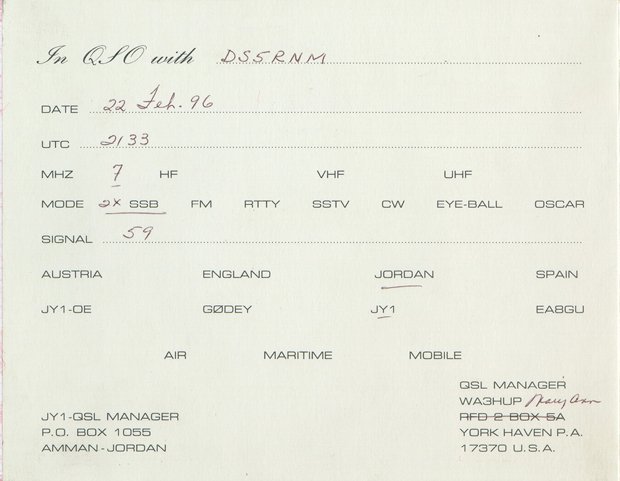 In QSO with DS5RNM
DATE 22 Feb. 96
UTC 2133
MHZ 7 HF VHF UHF
MODE 2X SSB FM RTTY SSTV CW EYE-BALL OSCAR
SIGNAL 59
AUSTRIA ENGLAND JORDAN SPAIN
JY1-OE GØDEY JY1 EA8GU
AIR MARITIME MOBILE
QSL MANAGER
WA3HUP Mary Ann
JY1-QSL MANAGER RFD 2 BOX 5A
P.O. BOX 1055 YORK HAVEN P.A.
AMMAN-JORDAN 17370 U.S.A.